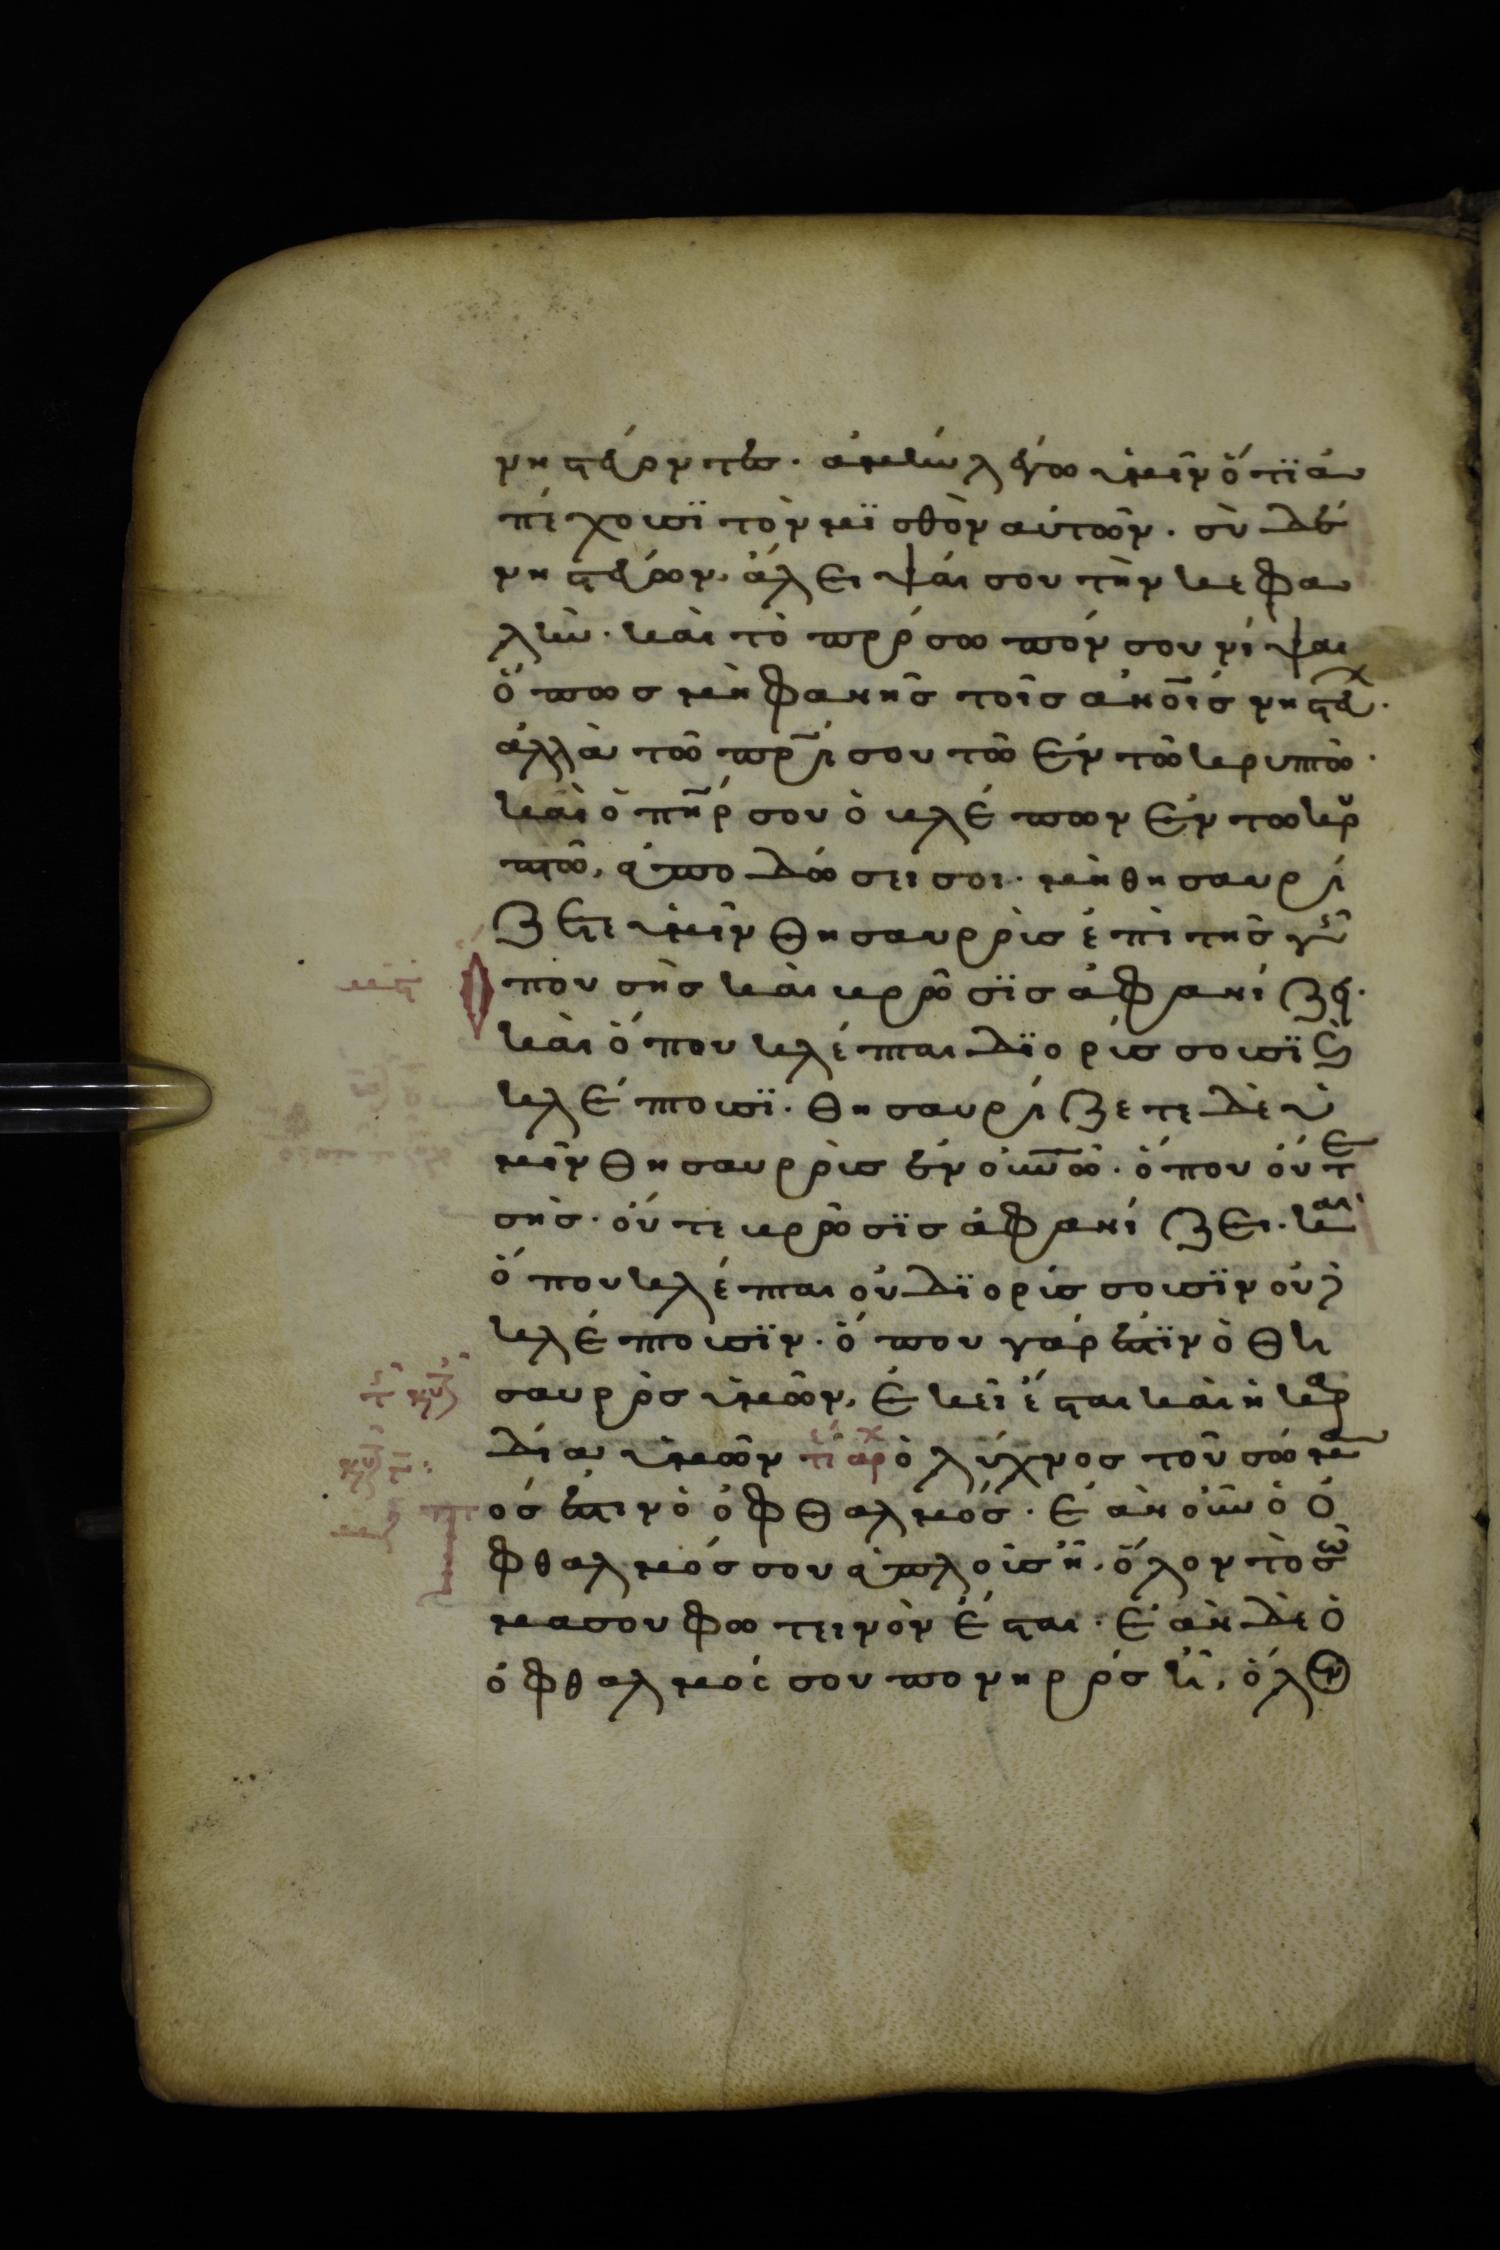 νηστεύοντες. ἀμὴν λέγω ὑμῖν ὅτϊ ἀ
πέχουσϊ τὸν μϊσθὸν αὐτῶν. σὺ δὲ
νηστεύων, ἄλειψαί σου τὴν κεφα
λὴν. καὶ τὸ πρόσωπόν σου νίψαι
ὅπως μὴ φανῆς τοῖς ἀνοις νηστευ.
ἀλλὰ τῶ πρί σου τῶ ἐν τῶ κρυπτῶ.
καὶ ὁ πηρ σου ὁ βλέπων ἐν τῶ κρυ
πτῶ, ἀποδώσει σοι. μὴ θησαυρί
ζετε ὑμῖν θησαυροὺς ἐπὶ τῆς γῆς
που σὴς καὶ βρῶσϊς ἀφανίζει.
καὶ ὅπου κλέπται δϊορύσσουσϊ καὶ
κλέπτουσϊ. θησαυρίζετε δὲ ὑ
μῖν θησαυροὺς ἐν οὐνῶ. ὅπου οὔτε
σὴς. οὔτε βρῶσϊς ἀφανίζει. καὶ
ὅπου κλέπται οὐ δϊορύσσουσϊν οὐδὲ
κλέπτουσϊν. ὅπου γάρ ἐστϊν ὁ θη
σαυρὸς ὑμῶν, ἐκεῖ ἔσται καὶ ἡ καρ
δία ὑμῶν ὁ λύχνος τοῦ σώμα
ός ἐστιν ὁ ὀφθαλμός. ἐὰν οὖν ὁ ὀ
φθαλμός σου ἁπλοῦς ῆ, ὅλον τὸ σῶ
μα σου φωτεινὸν ἔσται. ἐὰν δὲ ὁ
ὀφθαλμός σου πονηρός ῆ, ὅλον